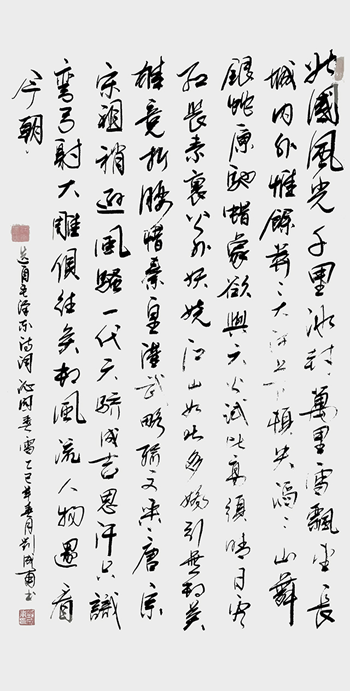 北國風光千里冰封萬里雪飄望長
城内外惟餘莽〻大河上下頓失滔〻山舞
銀蛇原馳蜡象欲與天公試比高須晴日看
紅裝素裹分外妖娆江山如此多嬌引無数英
雄競折腰惜秦皇漢武略輸文采唐宗
宋祖稍遜風騷一代天驕成吉思汗只識
彎弓射大雕俱往矣数風流人物還看
今朝
选自毛泽东诗词沁园春雪乙巳年春月刘成甫书